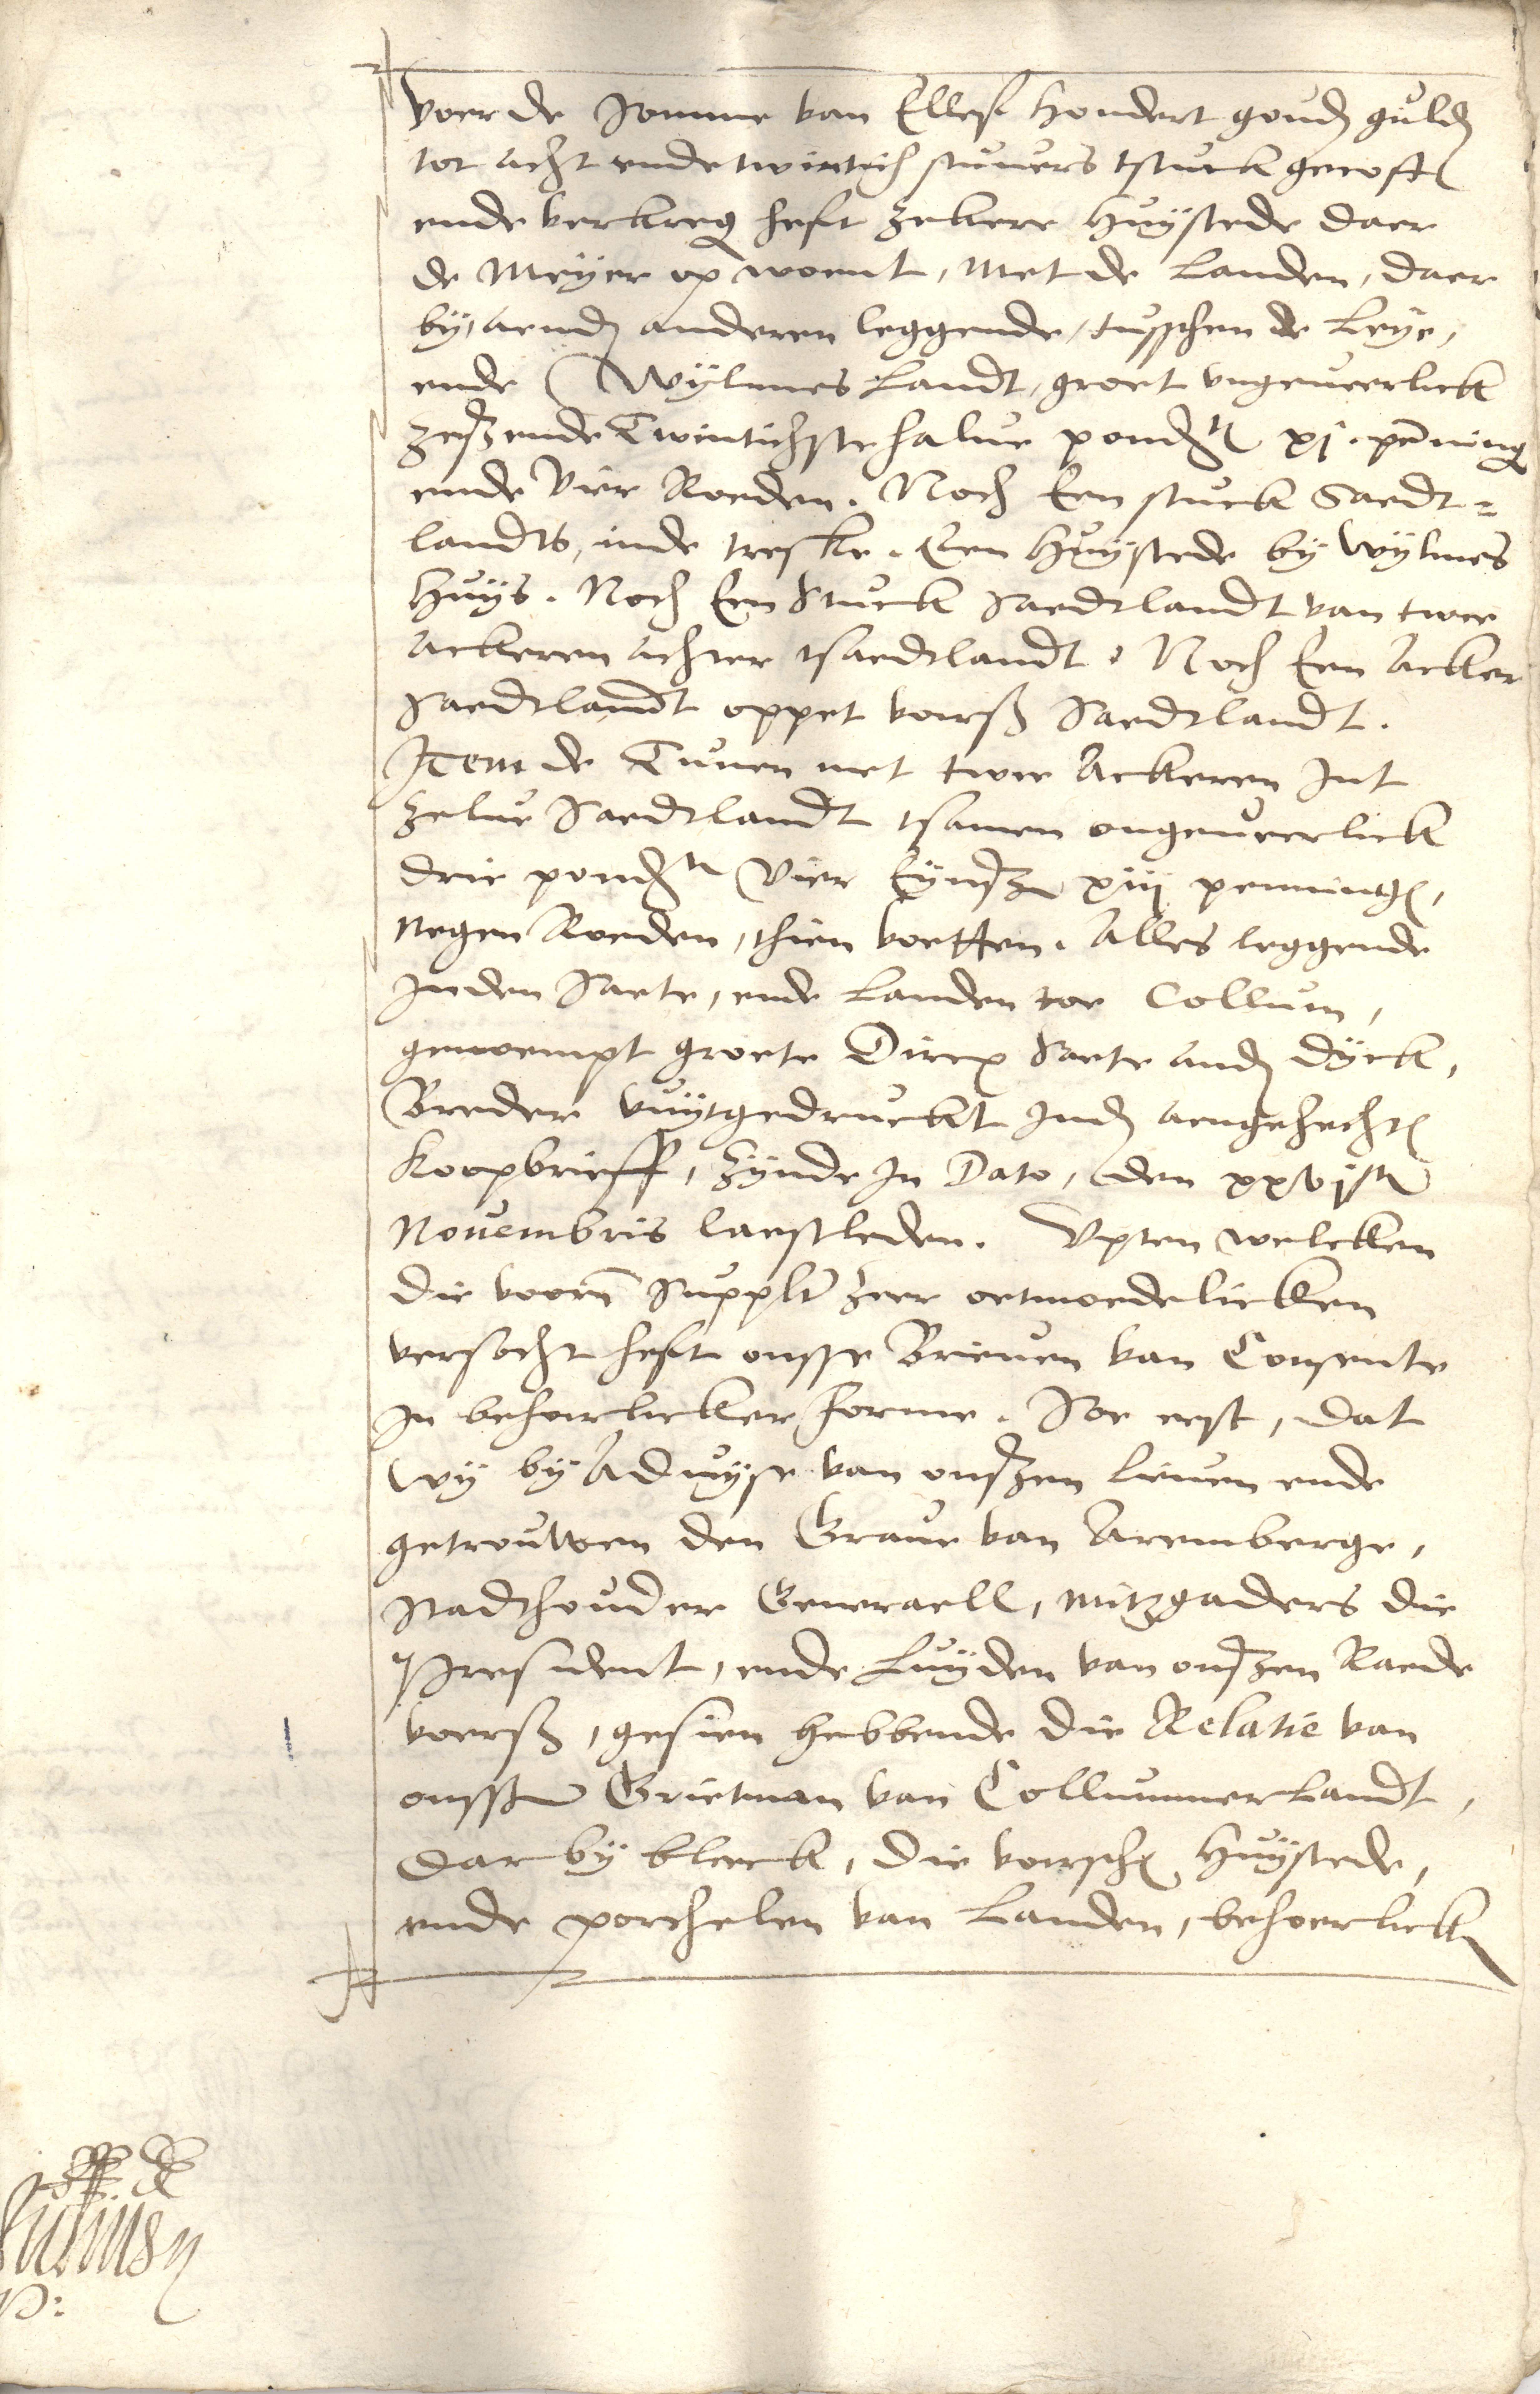 voer de somme van Elleff hondert goud guld
tot acht ende twintich stuvers tstuck gecoft
ende verkreg heft zekere Huystede daer
de Meyer op woent, Met de Landen, daer
by, aend anderen leggende, tusschen de Leye,
ende Wylmes Landt, groet ungeveerlick
zesz ende Twintichste halve pondt xj. penning
ende vier Roeden. Noch Een stuck Saedt=
landts, inde treske. Een Huystede by Wylmes
Huys. Noch Een Stuck saedtlandt van twee
ackeren achter tsaedtlandt. Noch Een Acker
saedtlandt oppet voirsz saedtlandt.
Item de Tunen met twee Ackeren Int
zelve saedtlandt tsamen ongeveerlick
drie pondt vier Eynsze xiij penning,
negen Roeden, thien voetten. Alles leggende
In den saete, ende Landen toe Collum,
genoempt groete Dircx saete and Dyck,
Breder vuytgedruckt Ind aengehecht
koopbrieff, zynde In Dato, den xxvjten
Novembris laestleden. Upten welcken
die voorn supplt zeer oetmoedelicken
versocht heft onsse Brieven van Consente
In behoirlicker forme. Soe eest, dat
wy by Advyse van onszen lieven ende
getrouwen den Grave van Aremberge,
stadthouder Generaell, mitzgaders die
President, ende Luyden van onszen Raede
voersz, gesien hebbende die Relatie van
onssen Grietman van Collummerlandt,
daer by bleeck, die voersch Huystede,
ende porchelen van Landen, behoerlick